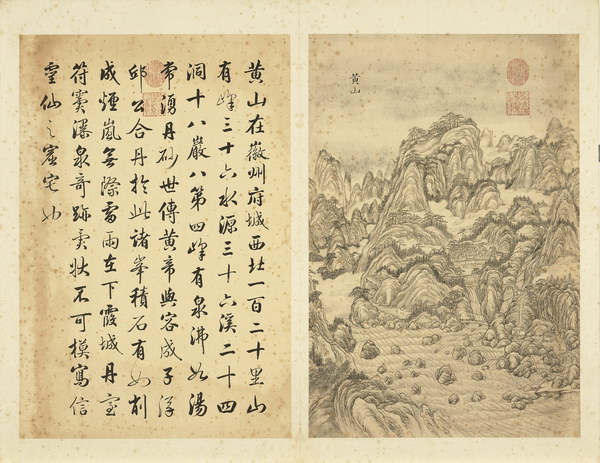 黄山在徽州府城西北一百二十里山
有峰三十六水源三十六溪二十四
洞十八巖八第四峰有泉沸如湯
常湧丹砂世傳黄帝與容成子浮
邱公合丹於此諸峯積石有如削
成煙嵐無際雷雨在下霞城丹室
符竇瀑泉奇跡異狀不可模寫信
靈仙之窟宅也
黄山